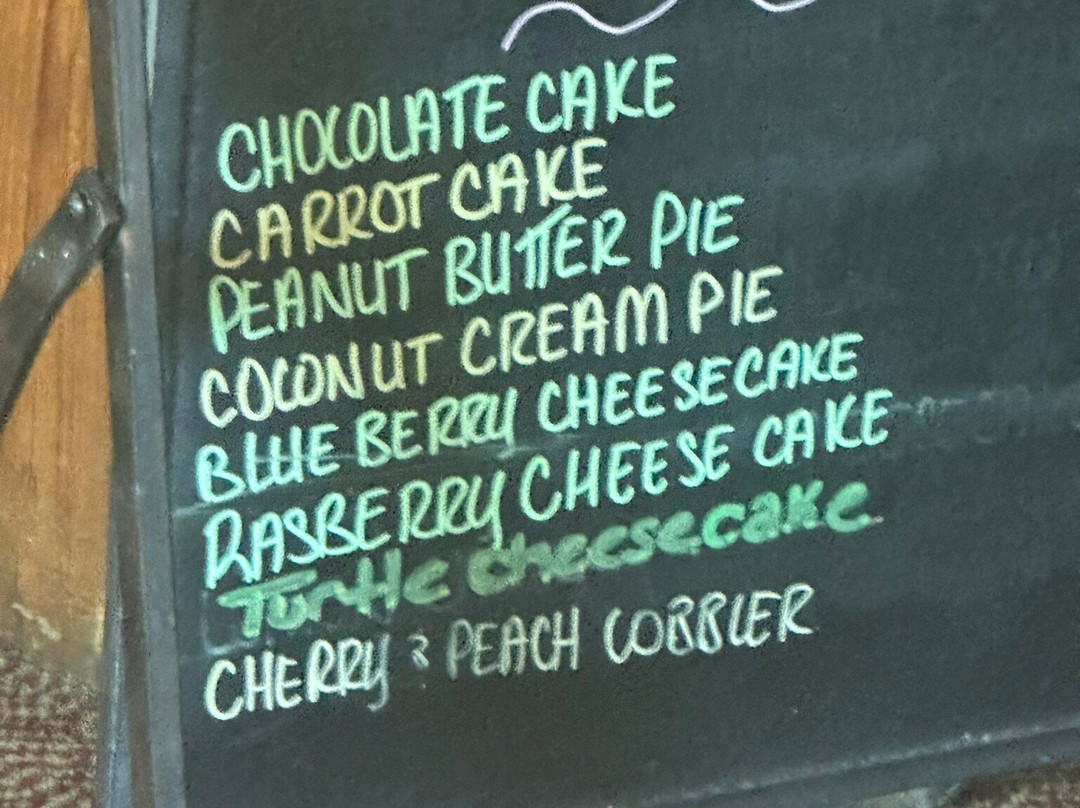 CHOCOLATE CAKE
CARROT CAKE
PEANUT BUTTER PIE
COCONUT CREAM PIE
BLUE BERRY CHEESECAKE
RASBERRY CHEESE CAKE
Turtle cheesecake
CHERRY & PEACH COBBLER